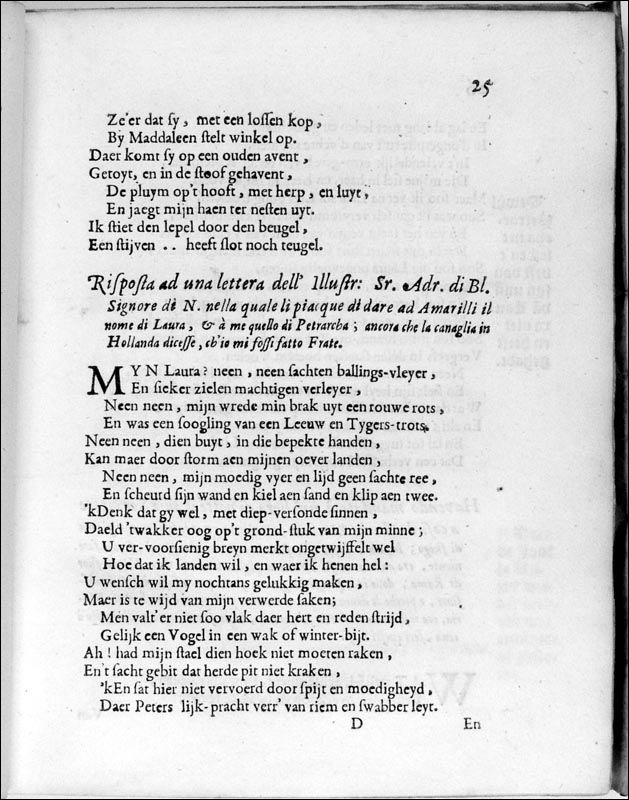 25
Ze'er dat sy, met een lossen kop,
By Maddaleen stelt winkel op.
Daer komt sy op een ouden avent,
Getoyt, en in de stoof gehavent,
De pluym op't hooft, met herp, en luyt,
En jaegt mijn haen ter nesten uyt.
Ik stiet den lepel door den beugel,
Een stijven .. heeft slot noch teugel.
Risposta ad una lettera dell' Illustr: Sr. Adr. di Bl.
Signore di N. nella quale li piacque di dare ad Amarilli il
nome di Laura, & à me quello di Petrarcha; ancora che la canaglia in
Hollanda dicesse, ch'io mi fossi fatto Frate.
MYN Laura? neen, neen sachten ballings-vleyer,
En sieker zielen machtigen verleyer,
Neen neen, mijn wrede min brak uyt een rouwe rots,
En was een soogling van een Leeuw en Tygers-trots.
Neen neen, dien buyt, in die bepekte handen,
Kan maer door storm aen mijnen oever landen,
Neen neen, mijn moedig vyer en lijd geen sachte ree,
En scheurd sijn wand en kiel aen sand en klip aen twee.
'kDenk dat gy wel, met diep-versonde sinnen,
Daeld 'twakker oog op't grond-stuk van mijn minne;
U ver-voorsienig breyn merkt ongetwijffelt wel
Hoe dat ik landen wil, en waer ik henen hel:
U wensch wil my nochtans gelukkig maken,
Maer is te wijd van mijn verwerde saken;
Men valt'er niet soo vlak daer hert en reden strijd,
Gelijk een Vogel in een wak of winter-bijt.
Ah! had mijn stael dien hoek niet moeten raken,
En't sacht gebit dat herde pit niet kraken,
'kEn sat hier niet vervoerd door spijt en moedigheyd,
Daer Peters lijk-pracht verr' van riem en swabber leyt.
D En